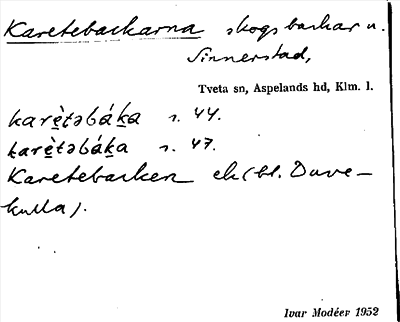 Karetebackarna skogsbackar u.
Sinnerstad,
Tveta sn, Aspelands hd, Klm. l.
karètəbáḵa s. 44.
karètəbáḵa s. 47.
Karetebacken ek (bl. Duve-
kulla).
Ivar Modéer 1952